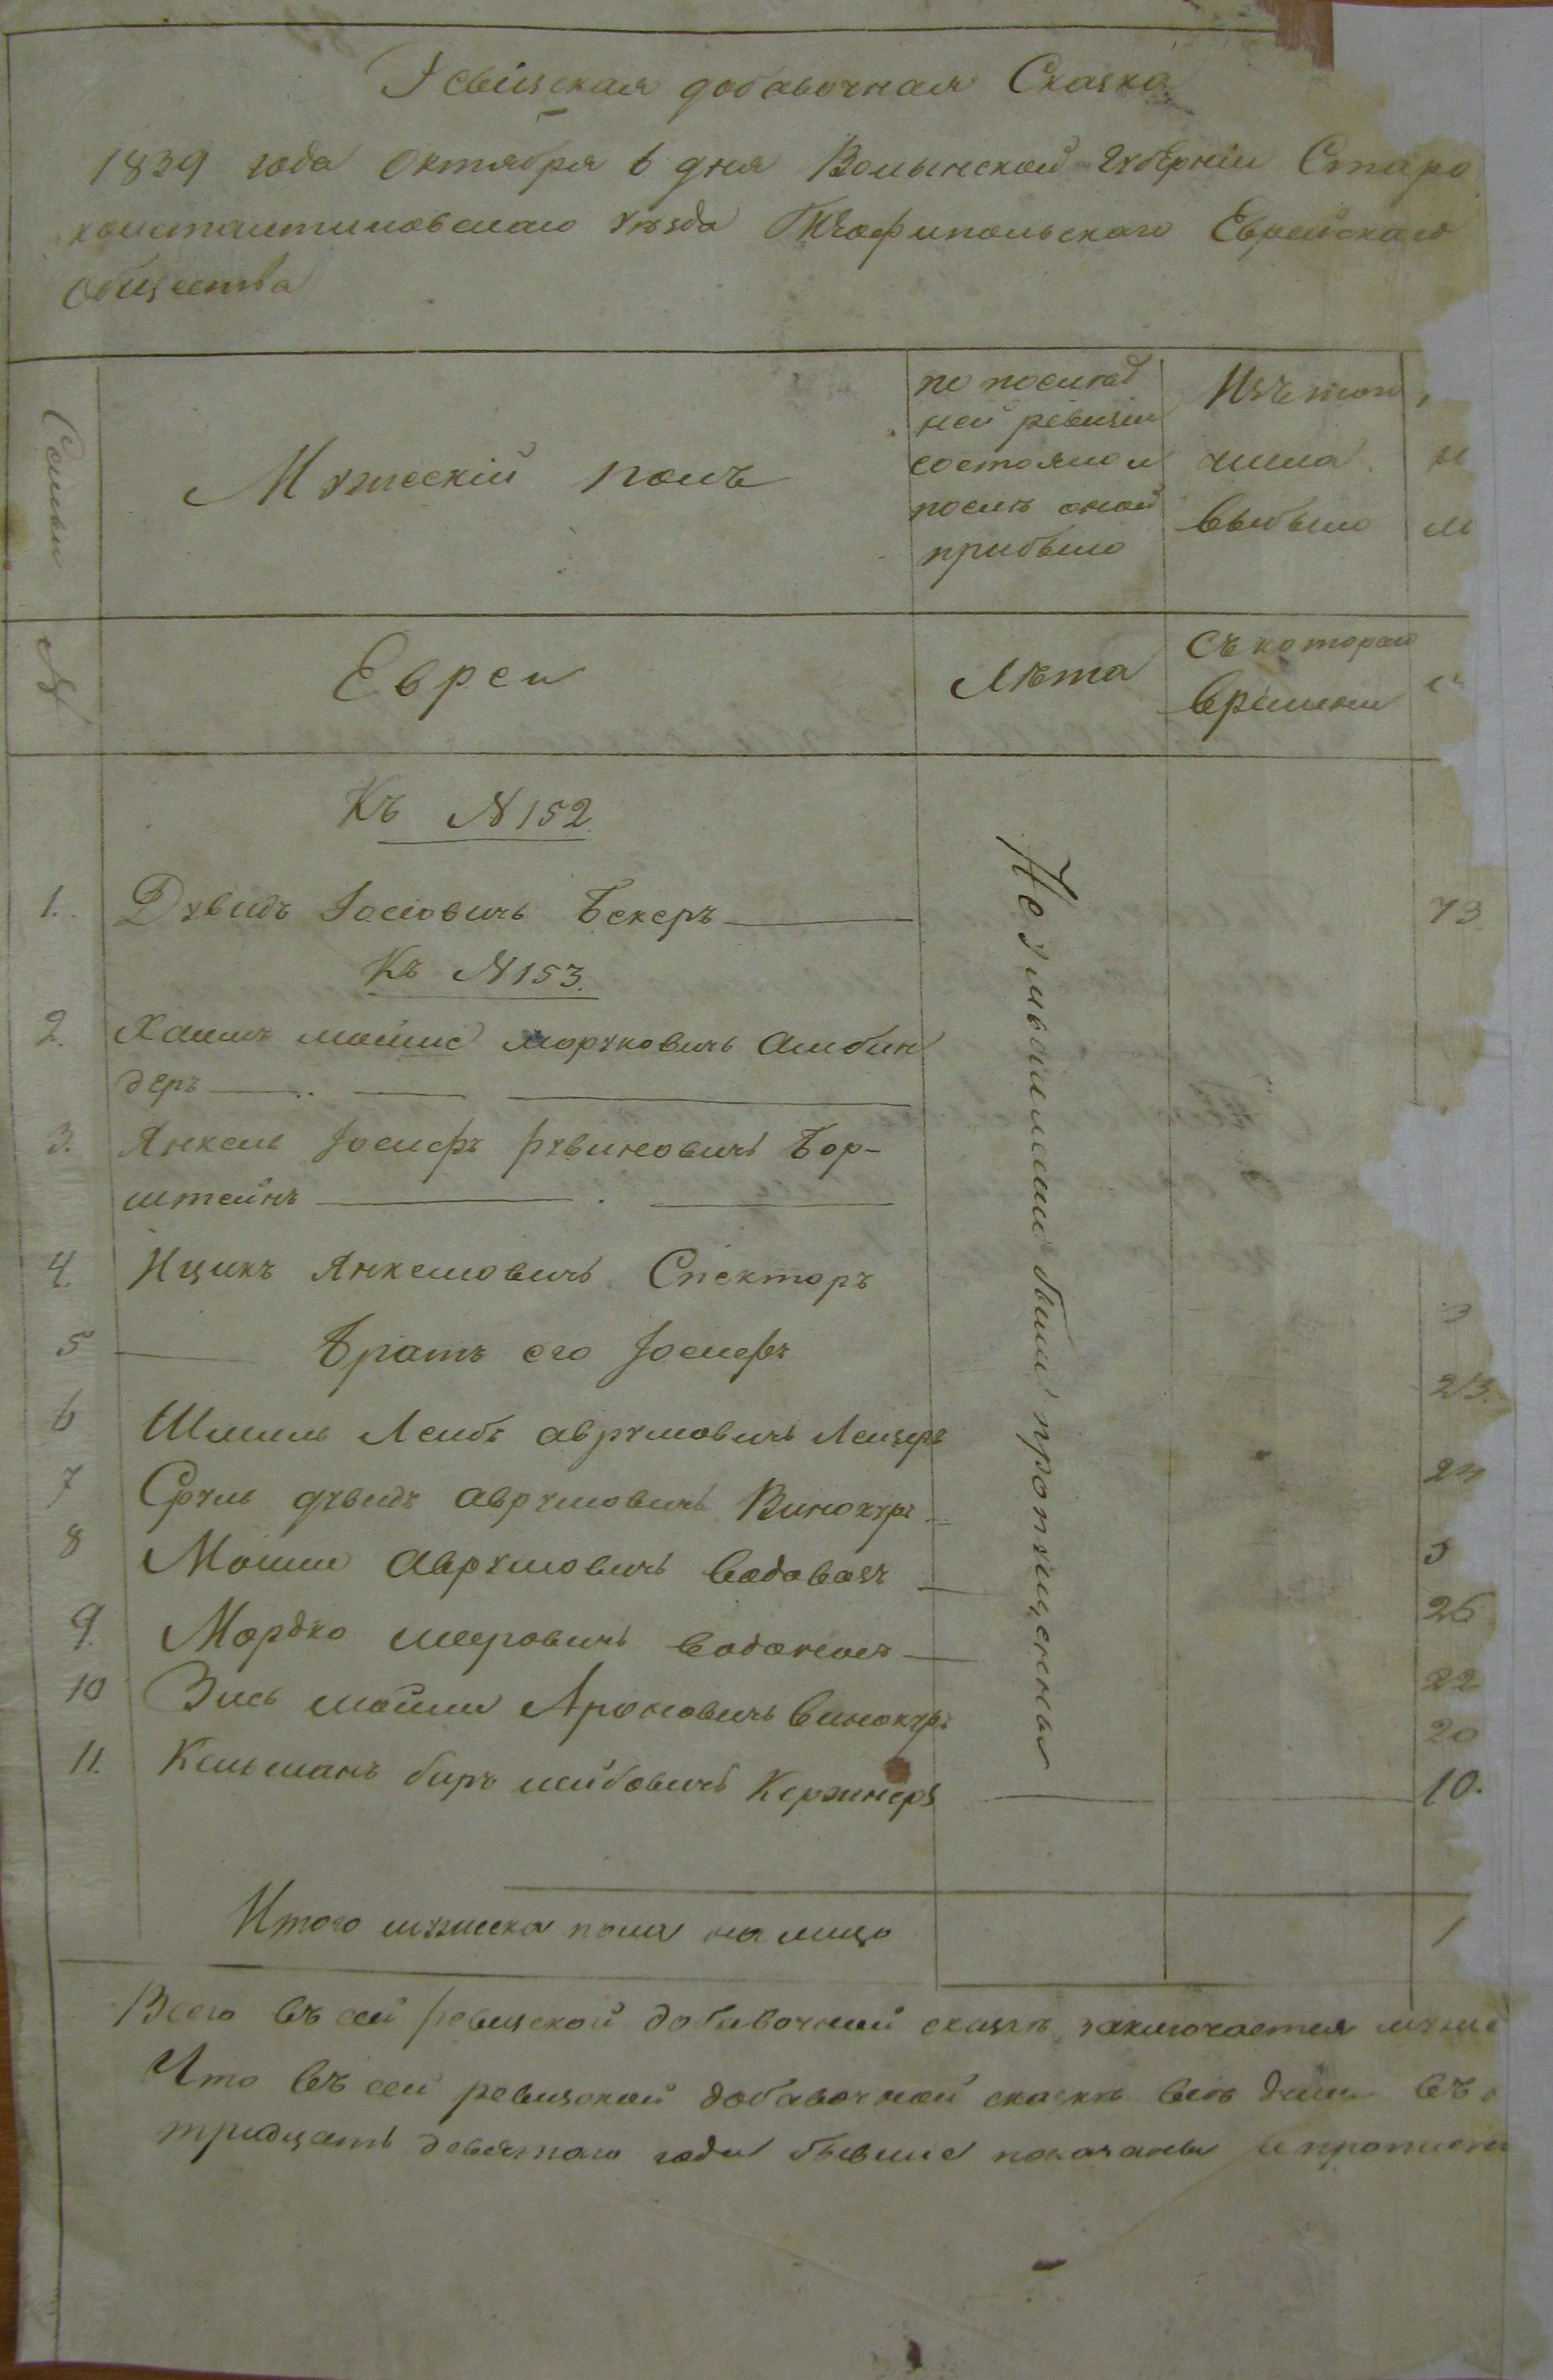 Ревизская добавочная Сказка
1839 года Октября 6 дня Волынской Губерніи Старо
константиновскаго уѣзда Теофипольскаго Еврейскаго
Общества
Семьи
Мужескій полъ
по послѣд
ней ревизіи
состояло и
послѣ оной
прибыло
Изъ того
числа
выбыло
№
Евреи
Лѣта
Съ котораго
времени
Къ №152.
1. Дувидъ Іосіовичь Бекеръ 73
Къ №153.
2. Хаимъ Мошко Моруковичь Альбин
деръ
3. Янкель Іосифъ Рувиновичь Бор-
штейнъ
4. Ицикъ Янкелювичь Спекторъ 3
5 Братъ его Іосифъ 23.
6 Шмиль Лейбъ Аврумовичь Лейзеръ
7 Сруль Дувидъ Аврумовичь Винокуръ
8 Мошко Аврумовичь Водовозъ 5
9. Мордко Мееровичь Водоносъ 26
10 Зись Мошко Ароновичь Винокуръ 22
20
11. Кельманъ Беръ Лейбовичь Кержнеръ 10.
Не умышленно были пропущены
Итого мужеска пола на лицо 1
Всего въ сей ревизской добавочной сказкѣ заключается муже
Что въ сей ревизской добавочной сказкѣ всѣ души въ
тридцать девятаго года бывшие показаны и